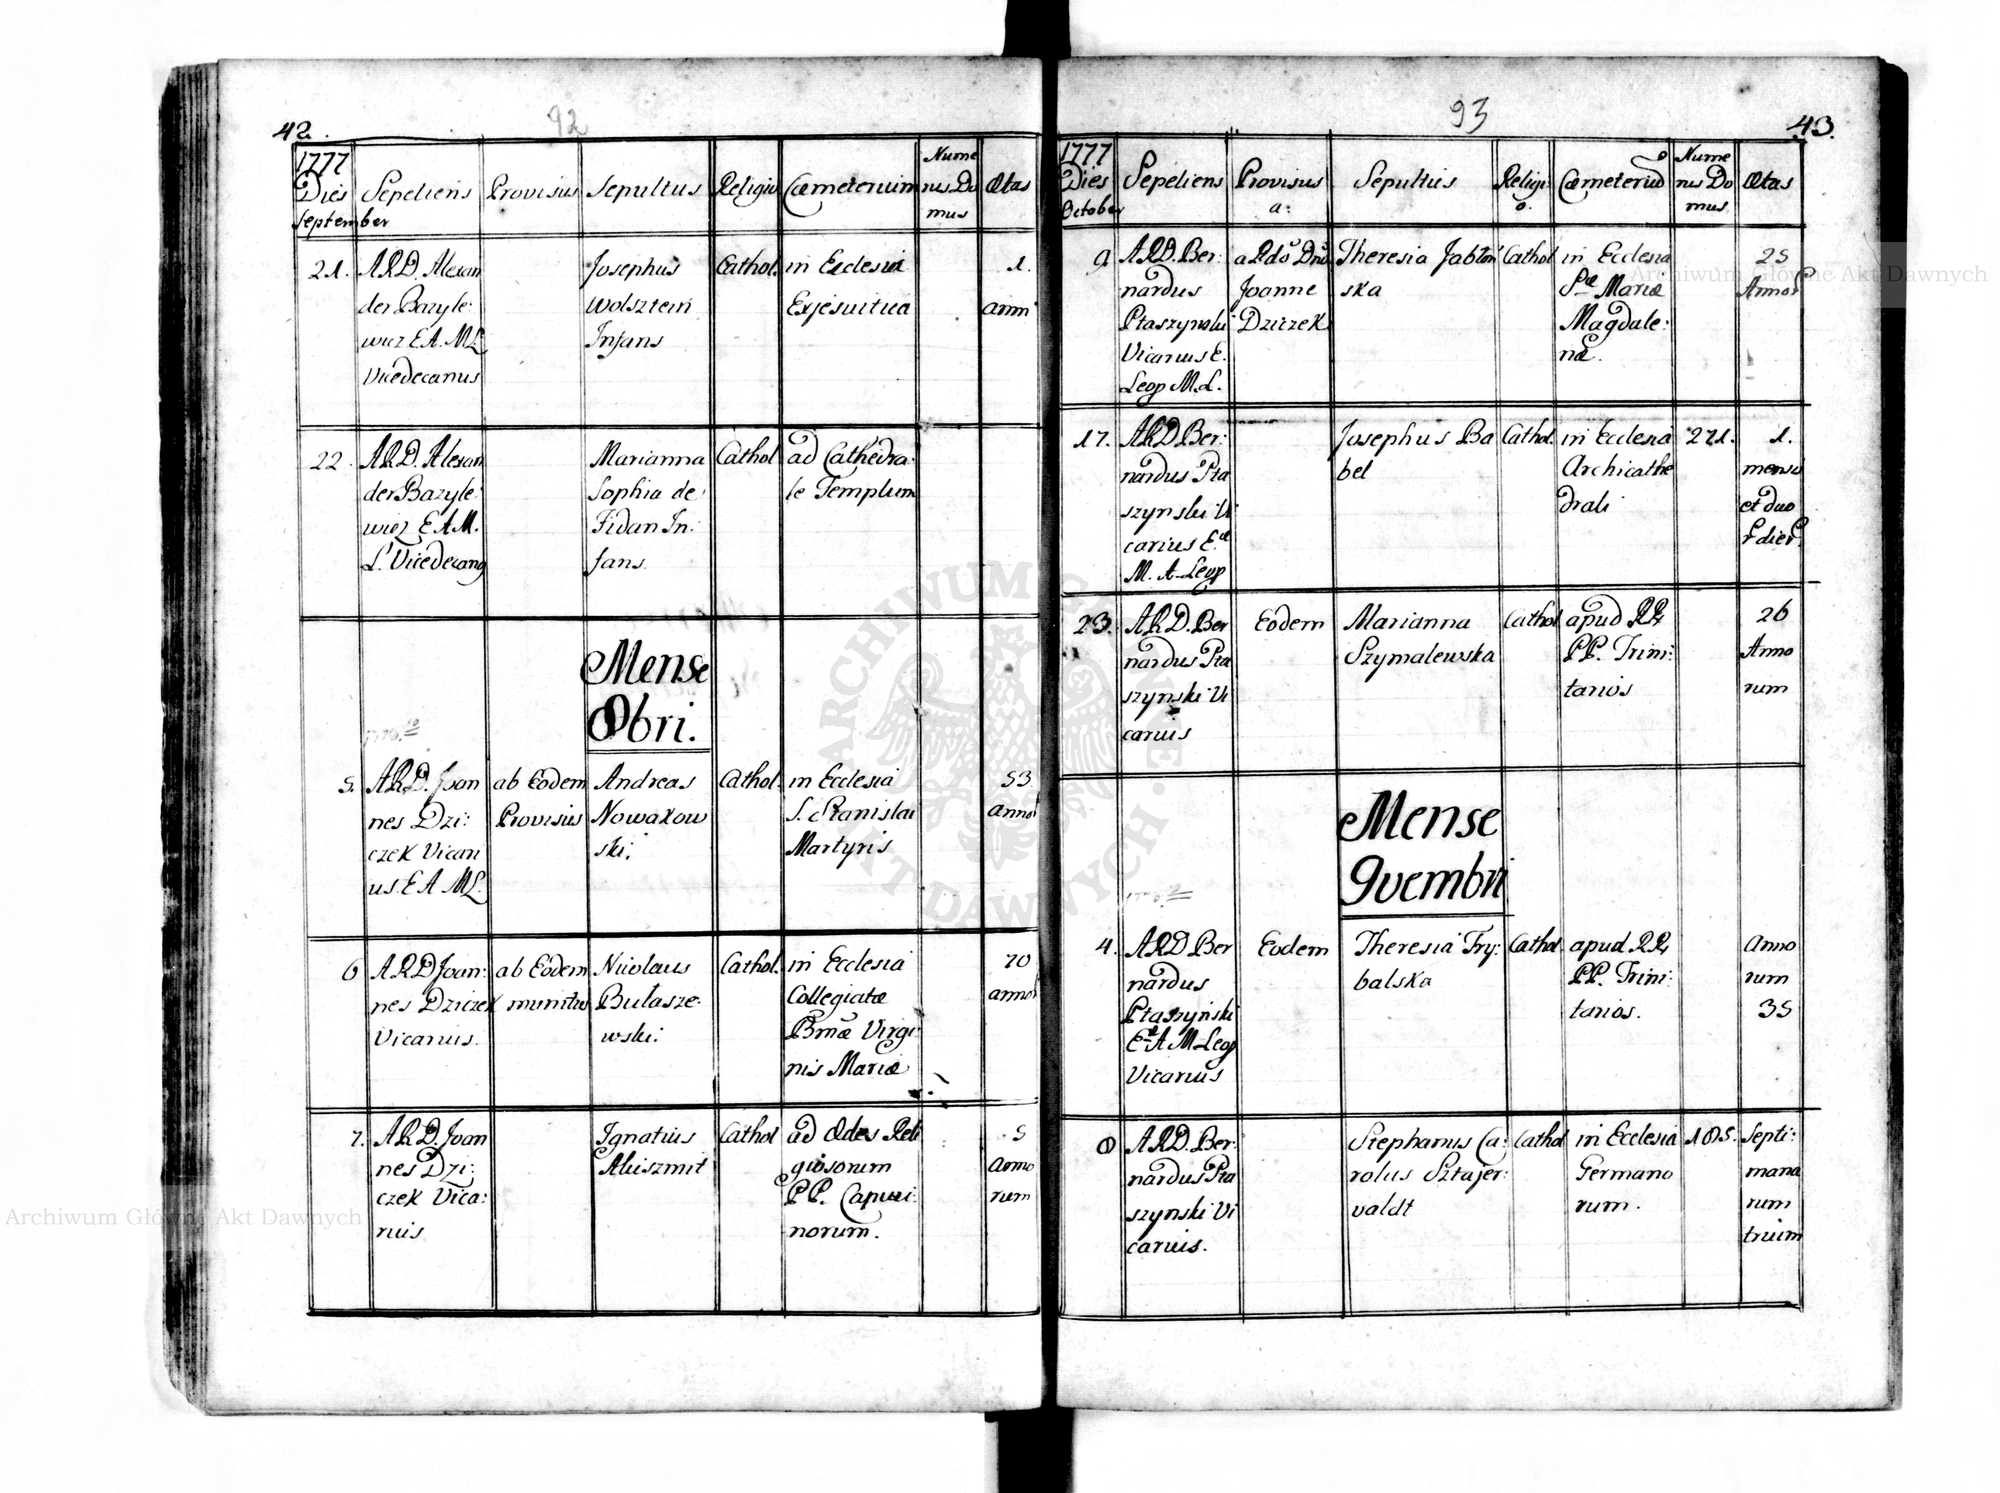 42.
92
1777
Dies
September
Sepeliens
Provisus
Sepultus
Religio
Cæmeterium
Nume
rus Do
mus
Ætas
21.
A.R.D. Alexan
der Bazyle:
wicz E.A.M.L.
Vicedecanus
Josephus
Wolsztein
Infans
Cathol.
in Ecclesia
Exjesuitica
1.
anni
22.
A.R.D. Alexan
der Bazyle:
wicz E.A.M.
L. Vicedecanq
Marianna
Sophia de
Fidan In:
fans
Cathol
ad Cathedra:
le Templum
Mense
8bri.
5.
A.R.D. Joan
nes Dzi:
czek Vicari
us. E A ML.
ab Eodem
Provisus
Andreas
Nowakow
ski.
Cathol.
in Ecclesia
S. Stanislai
Martyris
53
annor
6
A R D Joan:
nes Dziczek
Vicarius.
ab Eodem
munitus
Nicolaus
Bułasze:
wski.
Cathol.
in Ecclesia
Collegiatæ
Bmæ Virgi
nis Mariæ
70
annor
7.
A R.D. Joan
nes Dzi:
czek Vica:
rius
Ignatius
Aluszmit
Cathol
ad Ædes Reli
giosorum
PP. Capuci:
norum.
5
Anno
rum
93
43.
1777
Dies
October
Sepeliens
Provisus
a:
Sepultus
Religi
o.
Cæmeteriū
Nume
rus Do
mus.
Ætas
9
A R D. Ber:
nardus
Ptaszynski
Vicarius E.
Leop M.L.
a Rdo Dno
Joanne
Dziczek
Theresia Jabłon
ska
Cathol
in Ecclesia
Sæ Mariæ
Magdale:
næ.
25
Annor
17.
A R D Ber:
nardus Pta
szynski Vi
carius E.
M. A. Leop
Josephus Ba
bel
Cathol.
in Ecclesia
Archicathe
drali
271.
1.
mensis
et duo
r dier.
23.
A R D. Ber
nardus Pta
szynski Vi
carius
Eodem
Marianna
Szymalewska
Cathol
apud RR
PP. Trini:
tarios
26
Anno
rum
Mense
9vembri
4.
A R D Ber
nardus
Ptaszyński
E A M Leop
Vicarius
Eodem
Theresia Try:
balska
Cathol
apud RR
PP. Trini:
tarios.
Anno
rum
35
8
A R D. Ber:
nardus Pta
szynski Vi
carius.
Stephanus Ca:
rolus Sztajer:
valdt
Cathol
in Ecclesia
Germano
rum.
185.
Septi:
mana
rum
trium
ARCHIWUM GŁÓWNE AKT DAWNYCH
Archiwum Główne Akt Dawnych
Archiwum Główne Akt Dawnych